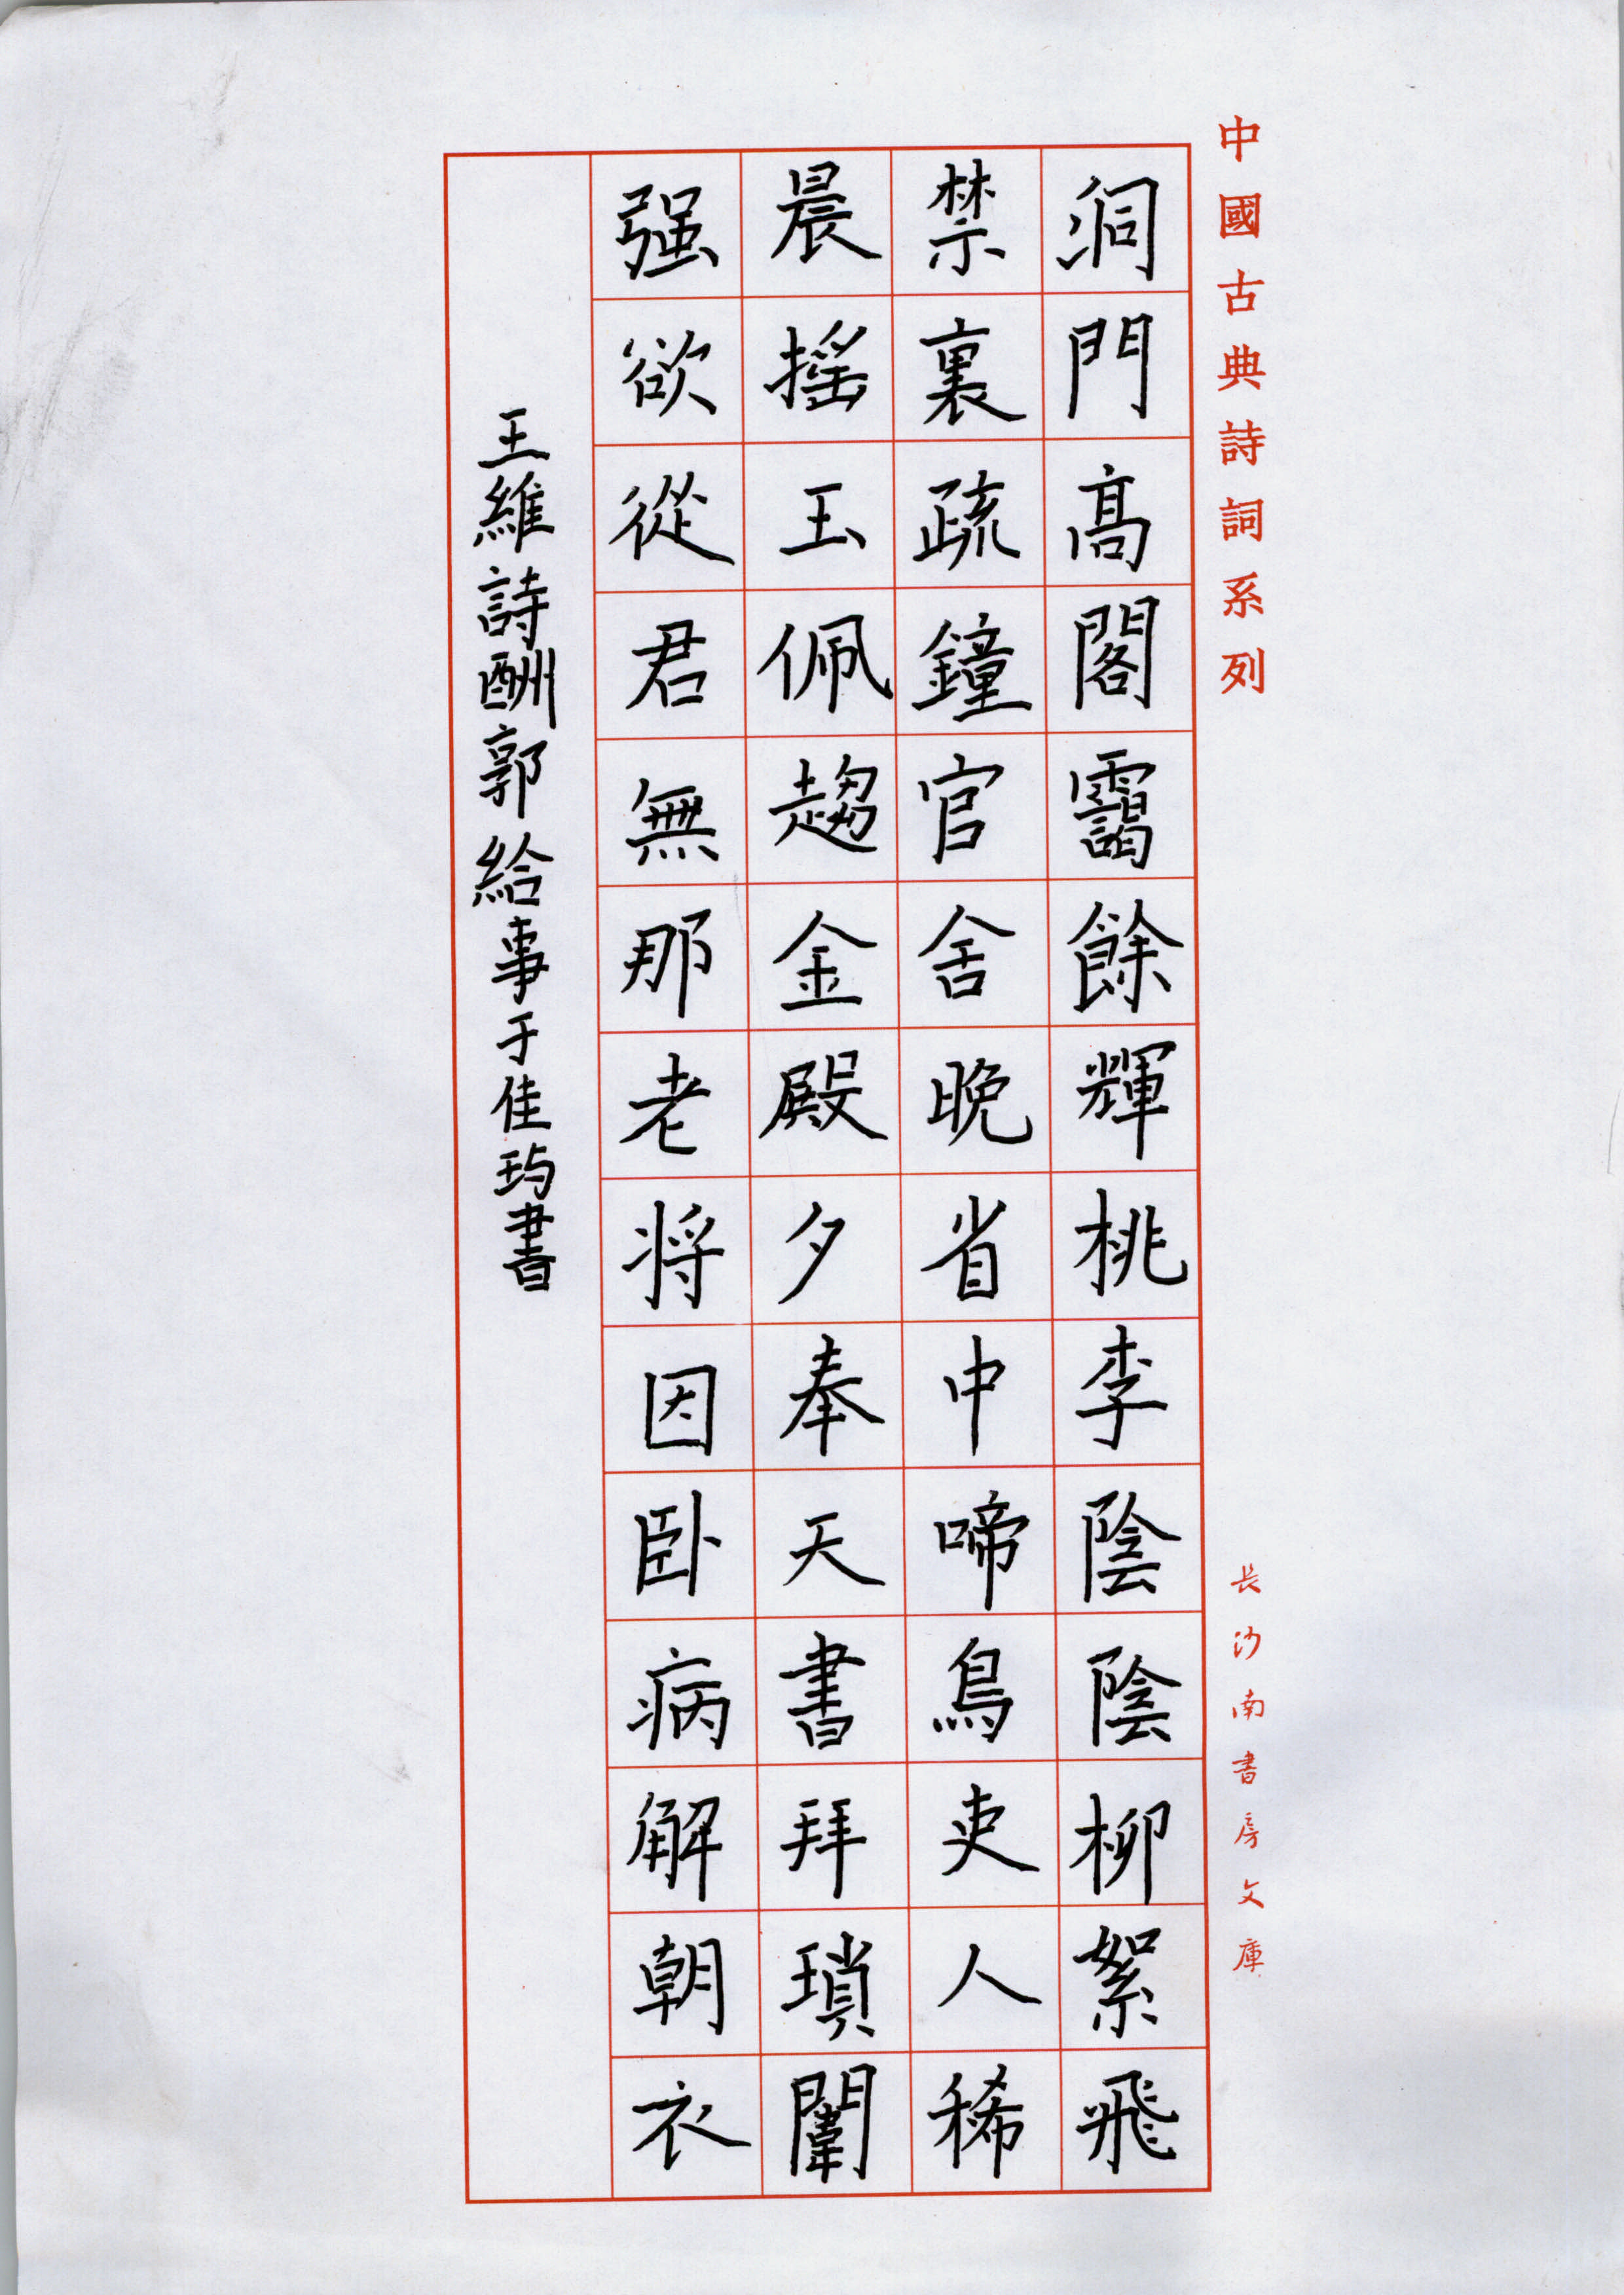 中國古典詩詞系列
長沙南書房文庫
洞門高閣靄餘輝桃李陰陰柳絮飛
禁裏疏鐘官舍晚省中啼鳥吏人稀
晨摇玉佩趨金殿夕奉天書拜瑣闈
强欲從君無那老将因卧病解朝衣
王維詩酬郭給事于佳玙書